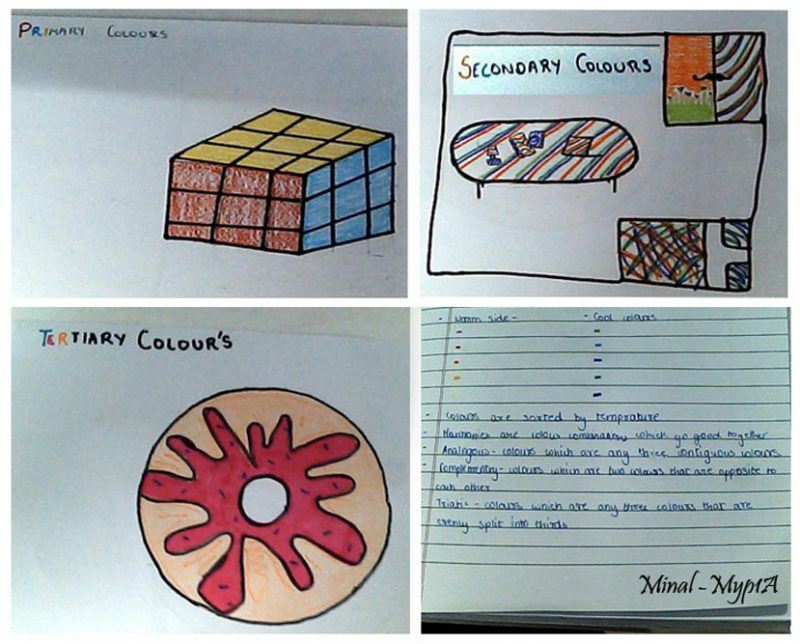 PRIMARY COLOURS
SECONDARY COLOURS
TERTIARY COLOUR'S
- Warm side - - Cool colours
- Colours are sorted by temprature
- Harmonies are colour which go good together
Analagous - colours which are any three contiguous colours
- Complementry - colours which are two colours that are opposite to
each other
Triatic - colours which are any three colours that are
evenly split into thirds
Minal - Myp1A